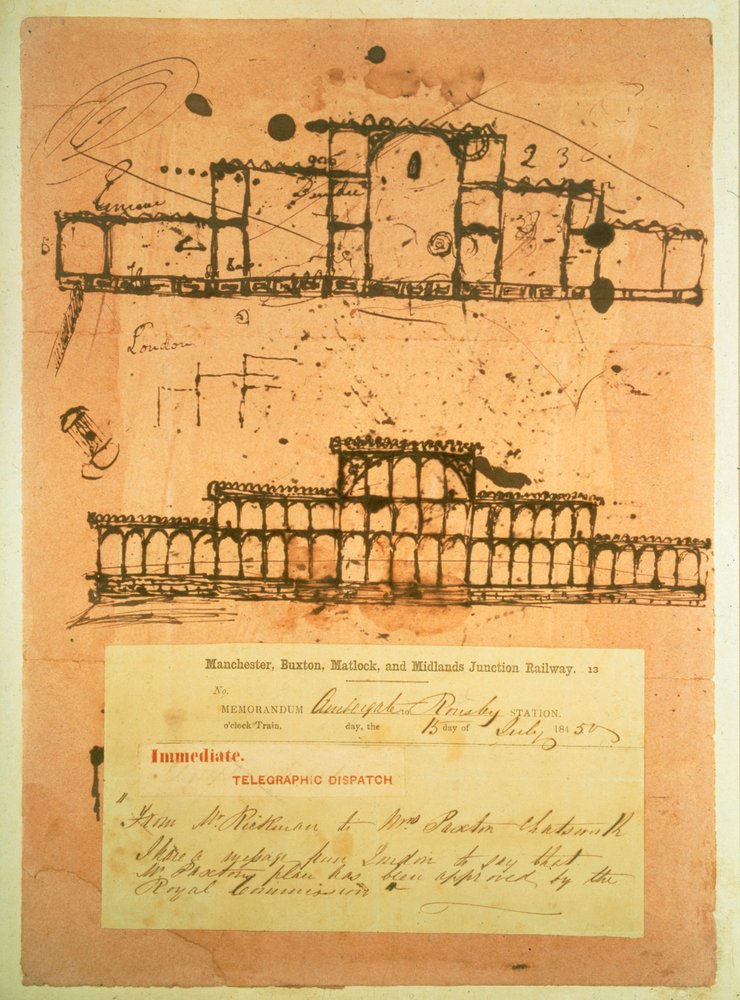 2 3 6
London
Manchester, Buxton, Matlock, and Midlands Junction Railway. 13
No.
MEMORANDUM Ambergate to Rowsby STATION.
o'clock Train, day, the 15 day of July 184 50
Immediate.
TELEGRAPHIC DISPATCH
"From Mr Rickman to Mrs Paxton Chatsworth
I have a message from London to say that
Mr Paxtons plan has been approved by the
Royal Commission"